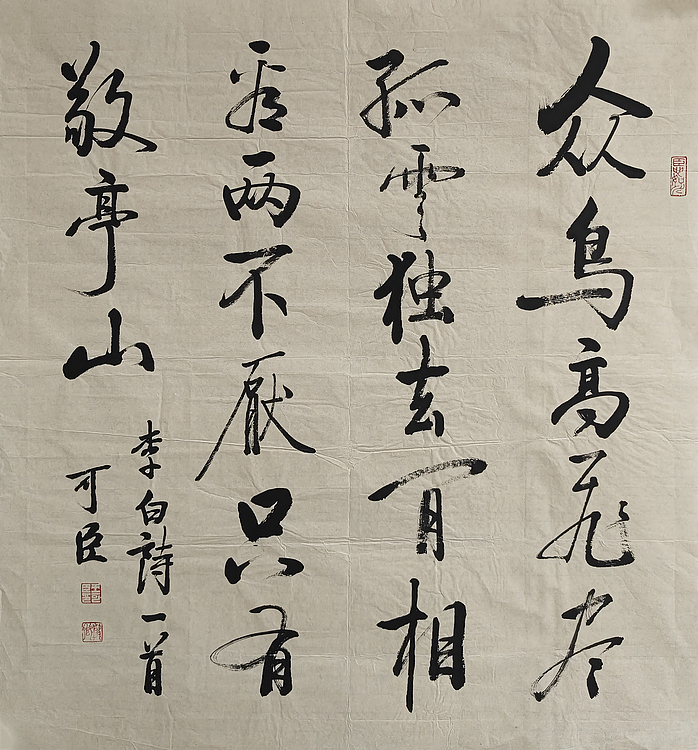 众鸟高飛尽
孤雲独去閒相
看两不厭只有
敬亭山
李白詩一首
可臣